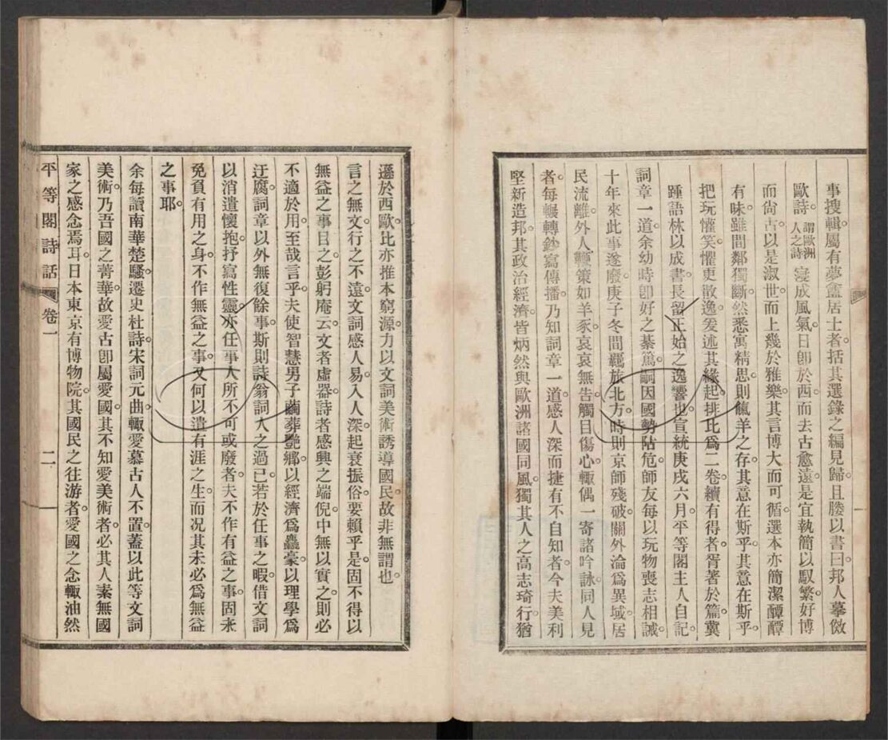 事搜輯屬有夢靈居士者括其選錄之編見歸且媵以書曰邦人摹倣
歐詩謂歐洲人之詩寖成風氣日卽於西而去古愈遠是宜執簡以馭繁好博
而尙古以是淑世而上幾於雅樂其言博大而可循選本亦簡潔醰醰
有味雖間鄰獨斷然悉寓精思則餼羊之存其意在斯乎其意在斯乎
把玩懽笑懼更散逸爰述其緣起排比爲二卷續有得者胥著於篇冀
踵語林以成書長留正始之逸響也宣統庚戌六月平等閣主人自記
詞章一道余幼時卽好之綦篤嗣因國勢阽危師友每以玩物喪志相誡
十年來此事遂廢庚子冬間羈旅北方時則京師殘破關外淪爲異域居
民流離外人鞭策如羊豕哀哀無告觸目傷心輒偶一寄諸吟詠同人見
者每輾轉鈔寫傳播乃知詞章一道感人深而捷有不自知者今夫美利
堅新造邦其政治經濟皆炳然與歐洲諸國同風獨其人之高志琦行猶
遜於西歐比亦推本窮源力以文詞美術誘導國民故非無謂也
言之無文行之不遠文詞感人易入人深起衰振俗要賴乎是固不得以
無益之事目之彭躬庵云文者虛器詩者感興之端倪中無以實之則必
不適於用至哉言乎夫使智慧男子繭葬艷鄉以經濟爲蟲豪以理學爲
迂腐詞章以外無復餘事斯則詩翁詞人之過已若於任事之暇借文詞
以消遣懷抱抒寫性靈亦任事人所不可或廢者夫不作有益之事固未
免負有用之身不作無益之事又何以遣有涯之生而况其未必爲無益
之事耶
余每讀南華楚騷遷史杜詩宋詞元曲輒愛慕古人不置蓋以此等文詞
美術乃吾國之菁華故愛古卽屬愛國其不知愛美術者必其人素無國
家之感念焉耳日本東京有博物院其國民之往游者愛國之念輒油然
平等閣詩話 卷一 二